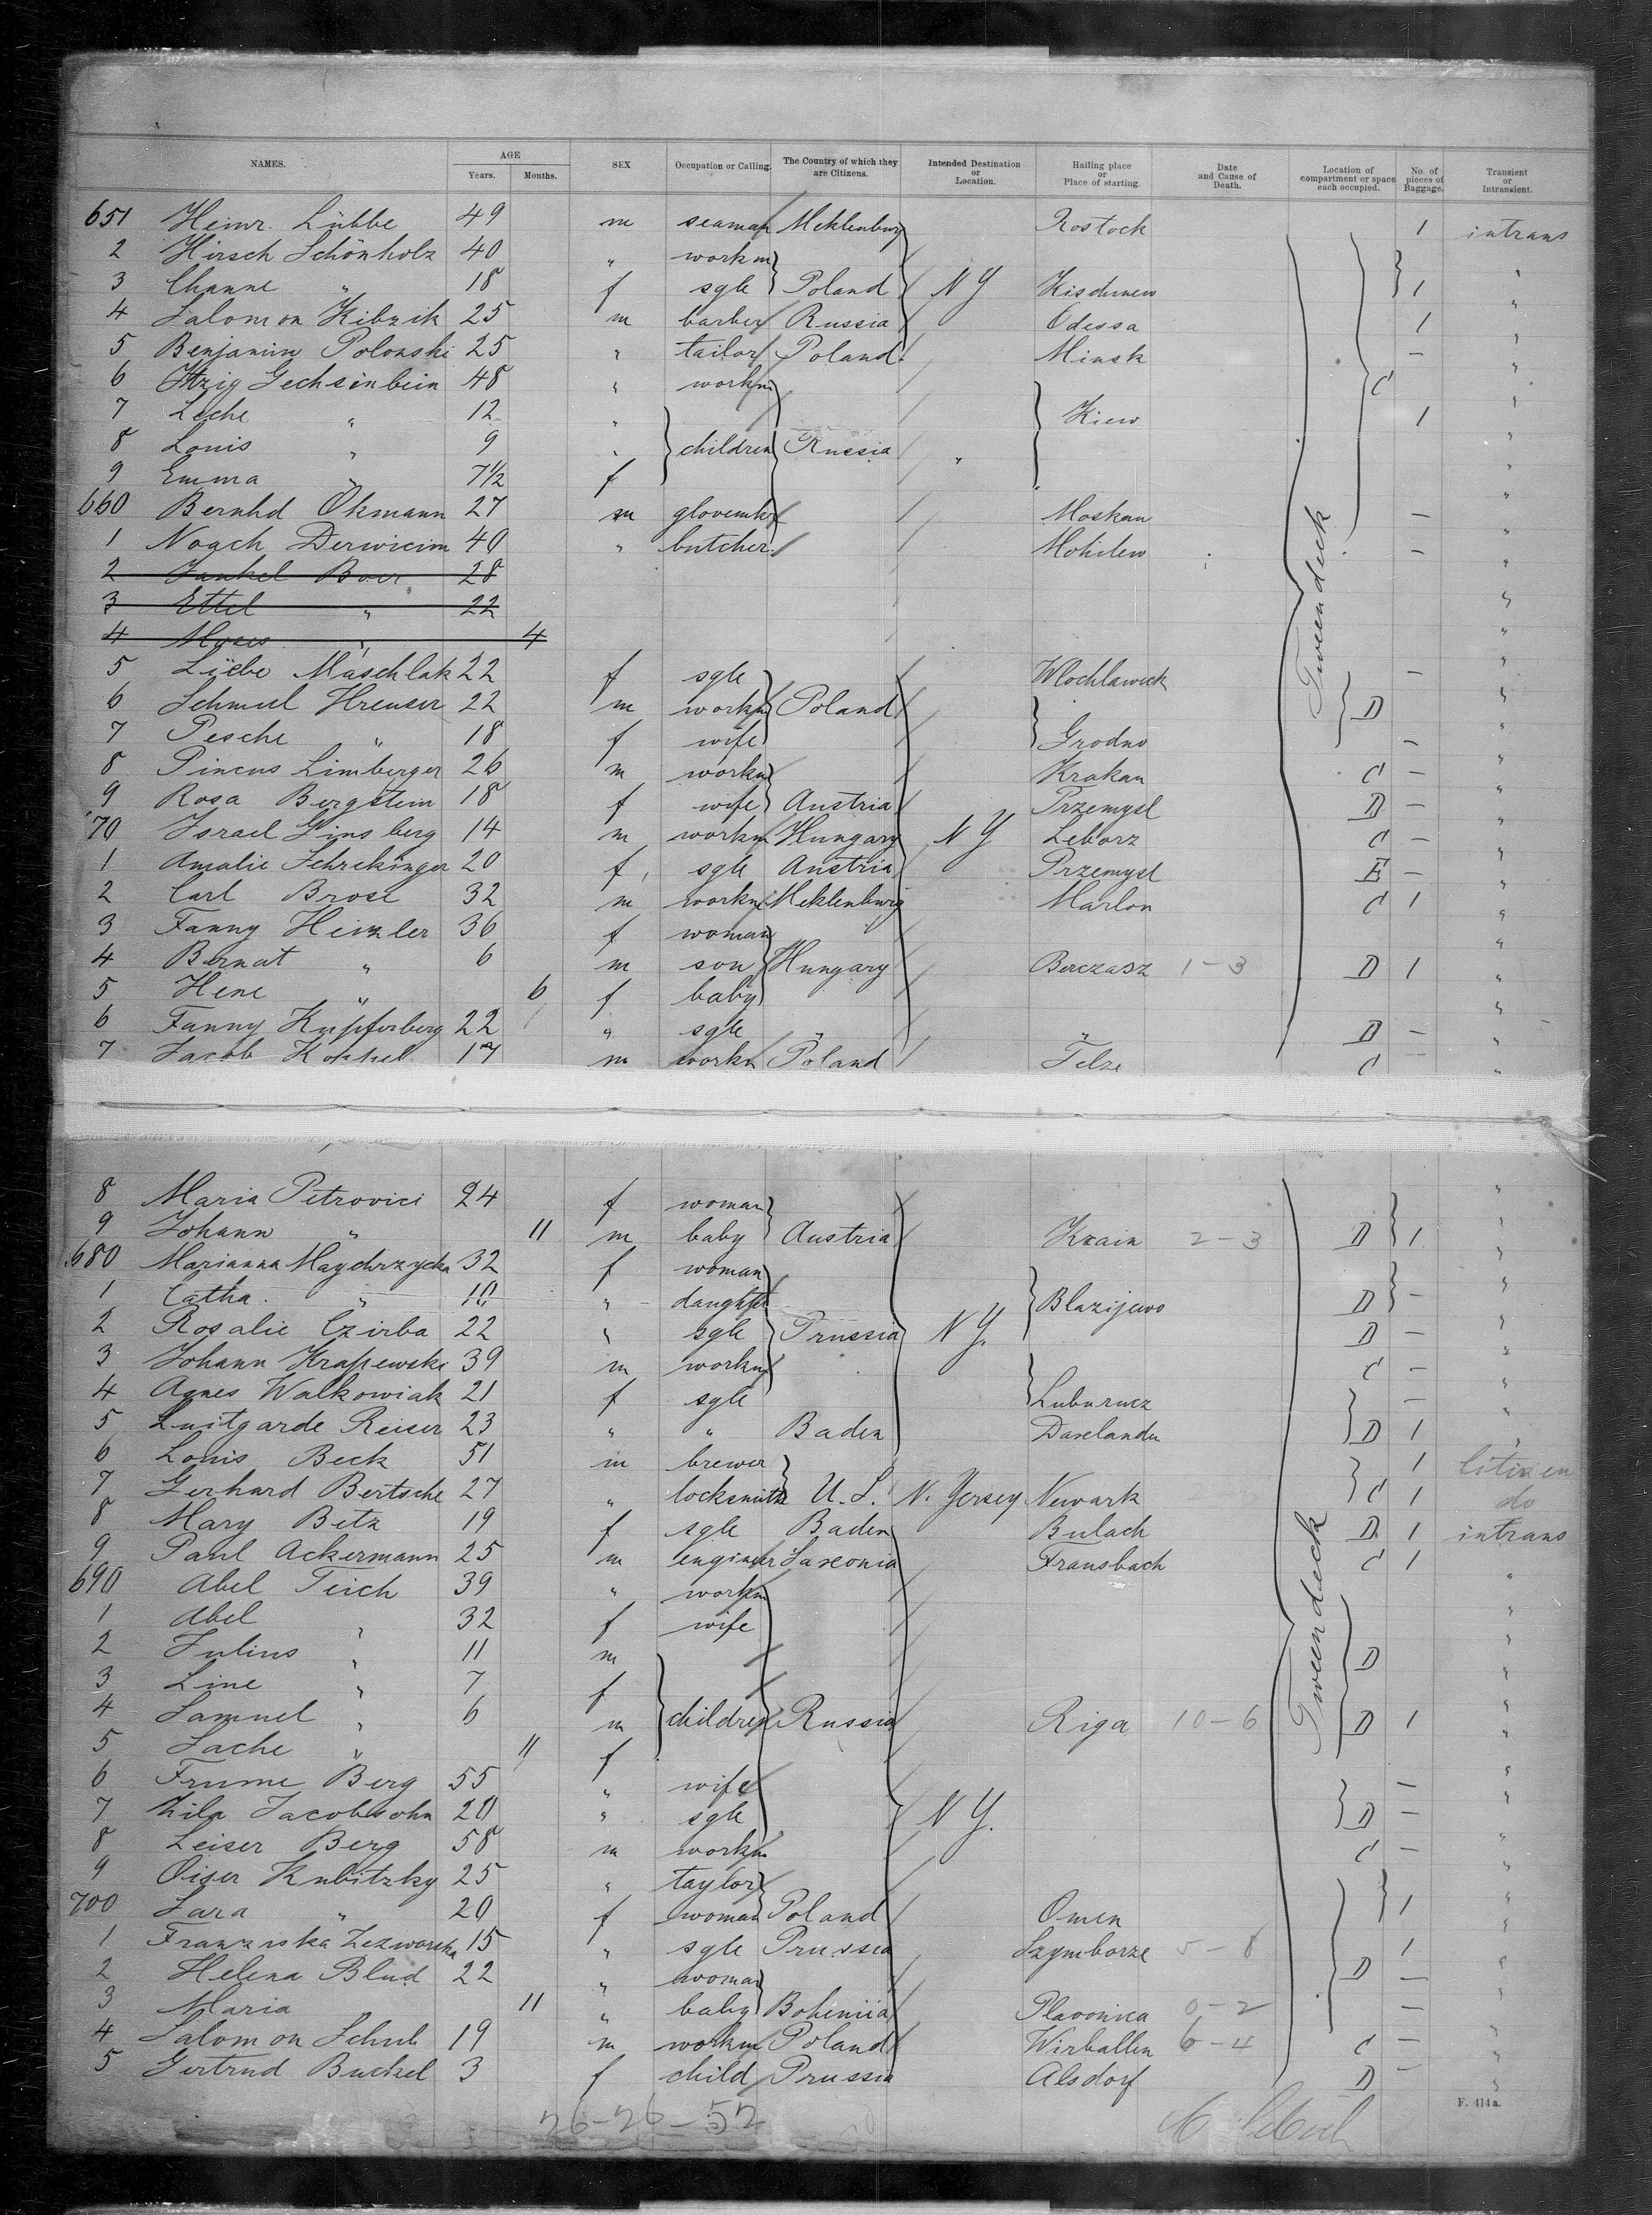 NAMES. AGE Years. Months. SEX Occupation or Calling. The Country of which they are Citizens. Intended Destination or Location. Hailing place or Place of starting. Date and Cause of Death. Location of compartment or space each occupied. No. of pieces of Baggage. Transient or Intransient.
651 Heinr. Lübbe 49 m seaman Meklenburg Rostock 1 intrans
2 Hirsch Schönholz 40 " workm "
3 Channe " 18 f sgle Poland NY Kischinew 1 "
4 Salomon Kibrik 25 m barber Russia Odessa 1 "
5 Benjamin Polonski 25 " tailor Poland Minsk — "
6 Itzig Gechsinbein 48 " workm C "
7 Leche " 12 " Kiew 1 "
8 Louis " 9 " children Russia " "
9 Emma " 7½ f "
660 Bernhd Okmann 27 m glovemkr Moskau — "
1 Noach Derwicim 40 " butcher Mohilew — "
2 Jankel Boer 28 "
3 Ettel " 22 "
4 Moses " 4 "
5 Liebe Maschlak 22 f sgle Wlochlaweck — "
6 Schmul Hreuser 22 m workm Poland D "
7 Pesche " 18 f wife Grodno — "
8 Pincus Limberger 26 m workm Krakau C — "
9 Rosa Bergstein 18 f wife Austria Przemysl D — "
70 Israel Ginsberg 14 m workm Hungary NY Leborz C — "
1 Amalie Schrekinger 20 f sgle Austria Przemysl E — "
2 Carl Brose 32 m workm Meklenburg Marlon C 1 "
3 Fanny Heizler 36 f woman "
4 Bernat " 6 m son Hungary Berczasz 1-3 D 1 "
5 Hene " 6 f baby "
6 Fanny Kupferberg 22 " sgle " " D — "
7 Jacob Koppel 17 m workm Poland Telze C — "
Tweendeck
8 Maria Petrovici 24 f woman "
9 Johann " 11 m baby Austria Krain 2-3 D 1 "
680 Marianna Maychrzycka 32 f woman "
1 Catha. " 10 " daughter Blazijewo D — "
2 Rosalie Czirba 22 " sgle Prussia NY. D — "
3 Johann Krapewski 39 m workm C — "
4 Agnes Walkowiak 21 f sgle — "
5 Luitgarde Reiser 23 " " Baden Daxelanden D 1 "
6 Louis Beck 51 m brewer 1 Citizen
7 Gerhard Bertsche 27 " locksmith U.S. N. Jersey Newark C 1 do
8 Mary Betz 19 f sgle Baden Bulach D 1 intrans
9 Paul Ackermann 25 m engineer Saxonia Fransbach C 1
690 Abel Teich 39 " workm "
1 Abel " 32 f wife "
2 Julius " 11 m D "
3 Line " 7 f "
4 Samuel " 6 m children Russia Riga 10-6 D 1 "
5 Sache " 11 f "
6 Frume Berg 55 " wife — "
7 Zila Jacobsohn 20 " sgle NY. D — "
8 Leiser Berg 58 m workm C — "
9 Oiser Kubitzky 25 " taylor "
700 Sara " 20 f woman Poland Omen 1 "
1 Franziska Zezwarska 15 " sgle Prussia Szymborze 5-8 1 "
2 Helena Blud 22 " woman D — "
3 Maria 11 " baby Bohemiia Plavonica 0-2 — "
4 Salomon Schub 19 m workm Poland Wirballen 6-4 C — "
5 Gertrud Buckel 3 f child Prussia Alsdorf D — "
Tweendeck
F. 414 a.
26-26-52